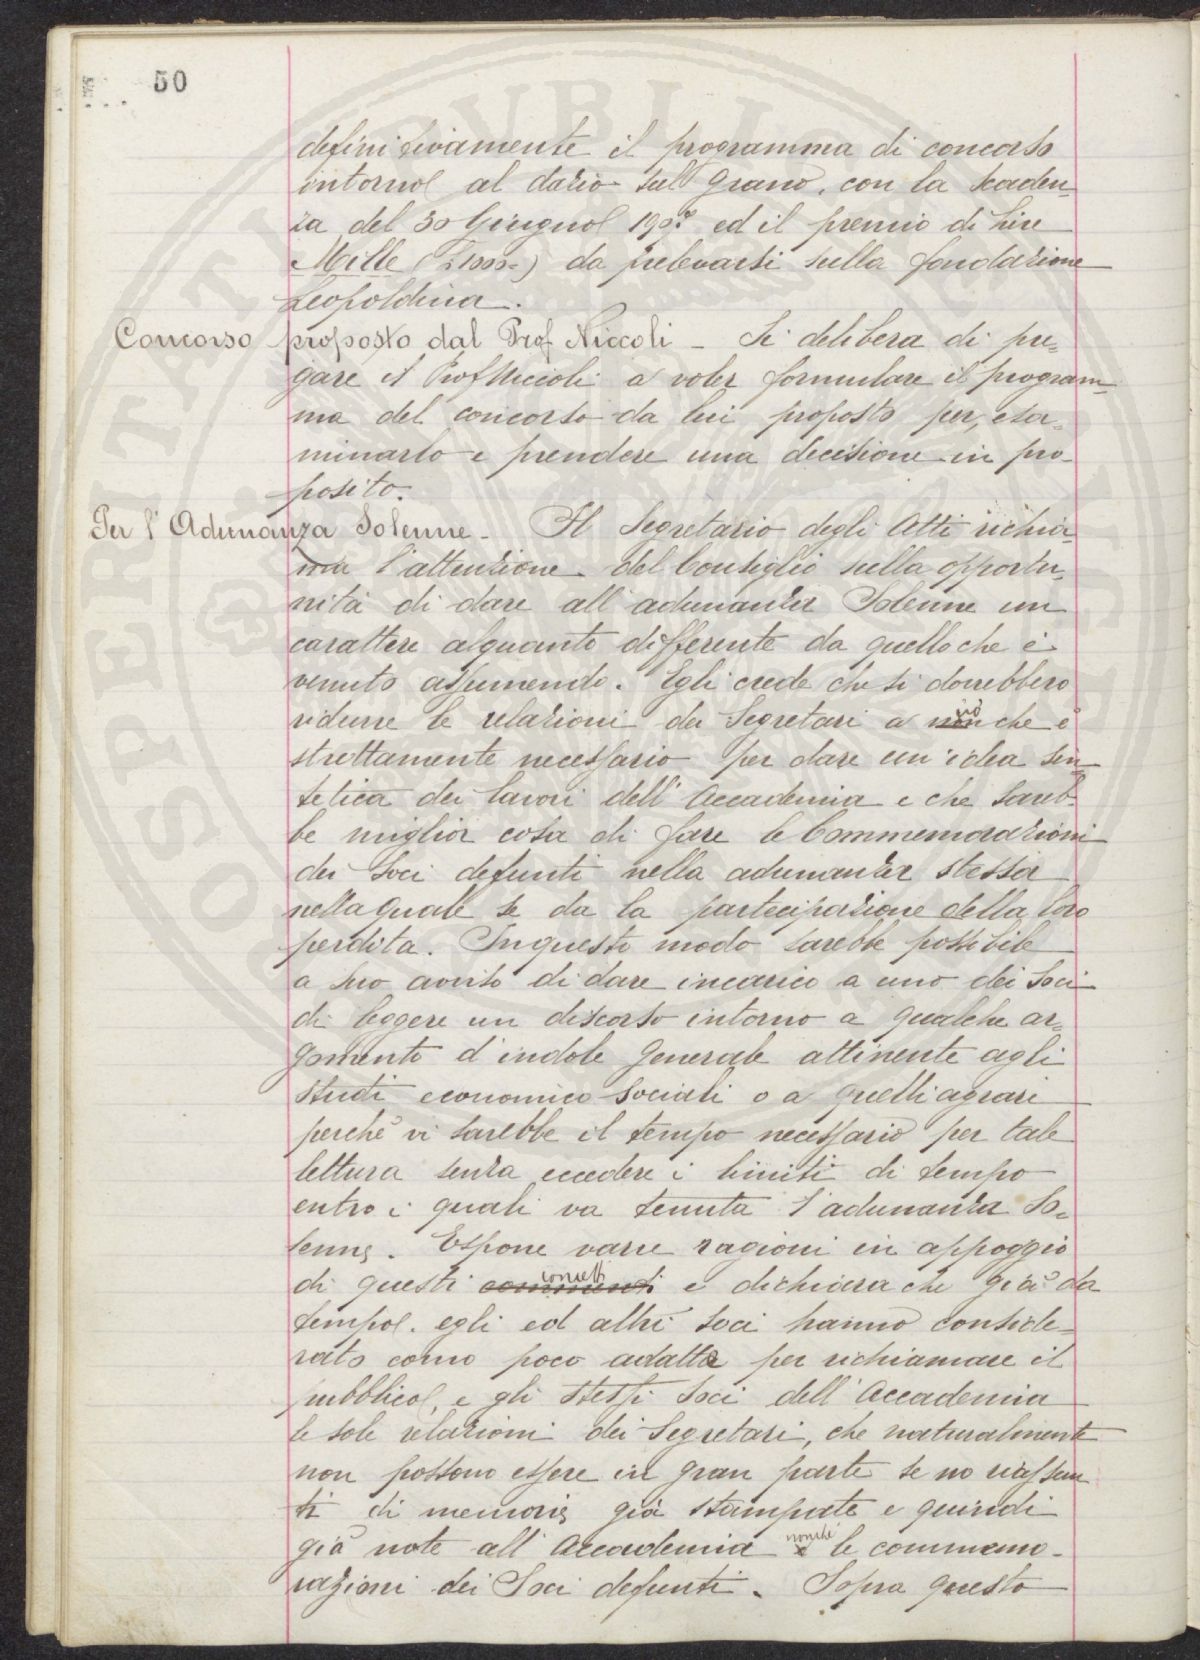 50
definitivamente il programma di concorso
intorno al dazio sul grano, con la scaden-
za del 30 Giugno ed il premio di Lire
Mille (£1000=) da prelevarsi sulla fondazione
Leopoldina.
Concorso proposto dal Prof Niccoli - Si delibera di pre=
gare il Prof Niccoli a voler formulare il program=
ma del concorso da lui proposto per esa=
minarlo e prendere una decisione in pro-
posito.
Per l'Adunanza Solenne - Il Segretario degli Atti richia-
ma l'attenzione del Consiglio sulla opportu-
nità di dare all'adunanza Solenne un
carattere alquanto differente da quello che è
venuto assumendo. Egli crede che si dovrebbero
ridurre le relazioni dei Segretari a ciò che è
strettamente necessario per dare un'idea sin-
tetica dei lavori dell'Accademia e che sareb-
be miglior cosa di fare le Commemorazioni
dei Soci defunti nella adunanza stessa
nella quale se da la partecipazione della loro
perdita. In questo modo sarebbe possibile
a suo avviso di dare incarico a uno dei Soci
di leggere un discorso intorno a qualche ar=
gomento d'indole generale attinente agli
studi economico-sociali o a quelli agrari
perchè vi sarebbe il tempo necessario per tale
lettura senza eccedere i limiti di tempo
entro i quali va tenuta l'adunanza So=
lenne. Espone varie ragioni in appoggio
di questi concetti e dichiara che già da
tempo egli ed altri soci hanno conside=
rato come poco adatte per richiamare il
pubblico, e gli stessi Soci dell'Accademia
le sole relazioni dei Segretari, che naturalmente
non possono essere in gran parte se no riassun
ti di memorie già stampate e quindi
già note all'Accademia nonchè le commemo-
razioni dei Soci defunti. Sopra questo